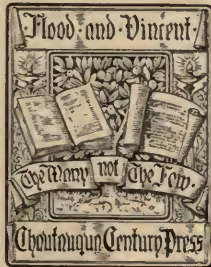 Flood · and · Vincent ·
The Many not The Few ·
Chautauqua Century Press